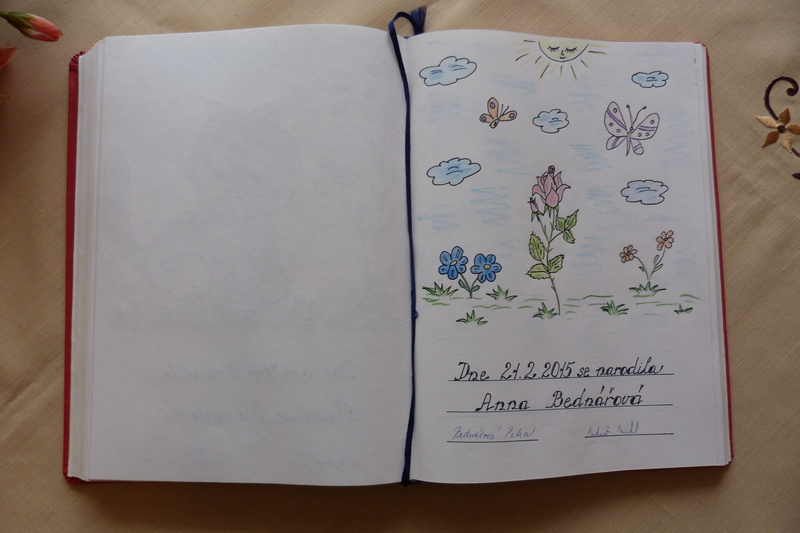 Dne 21.2.2015 se narodila
Anna Bednářová
Bednářová